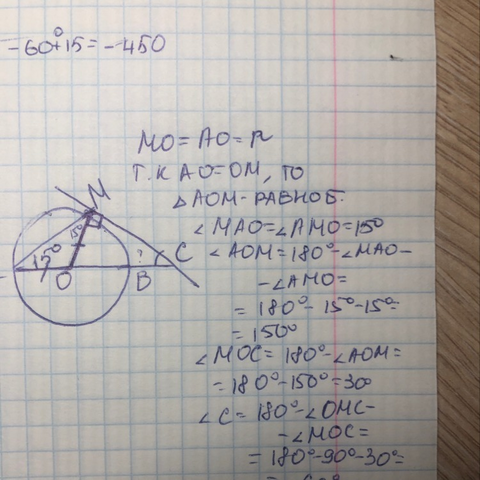 -60°+15=-450
MO=AO=R
Т.К АО=ОМ, ТО
△AOM-РАВНОБ.
∠MAO=∠AMO=15°
∠AOM=180°-∠MAO-
-∠AMO=
=180°-15°-15°=
=150°
∠MOC=180°-∠AOM=
=180°-150°=30°
∠C=180°-∠OMC-
-∠MOC=
=180°-90°-30°=
M
15°
15°
O
?
B
C